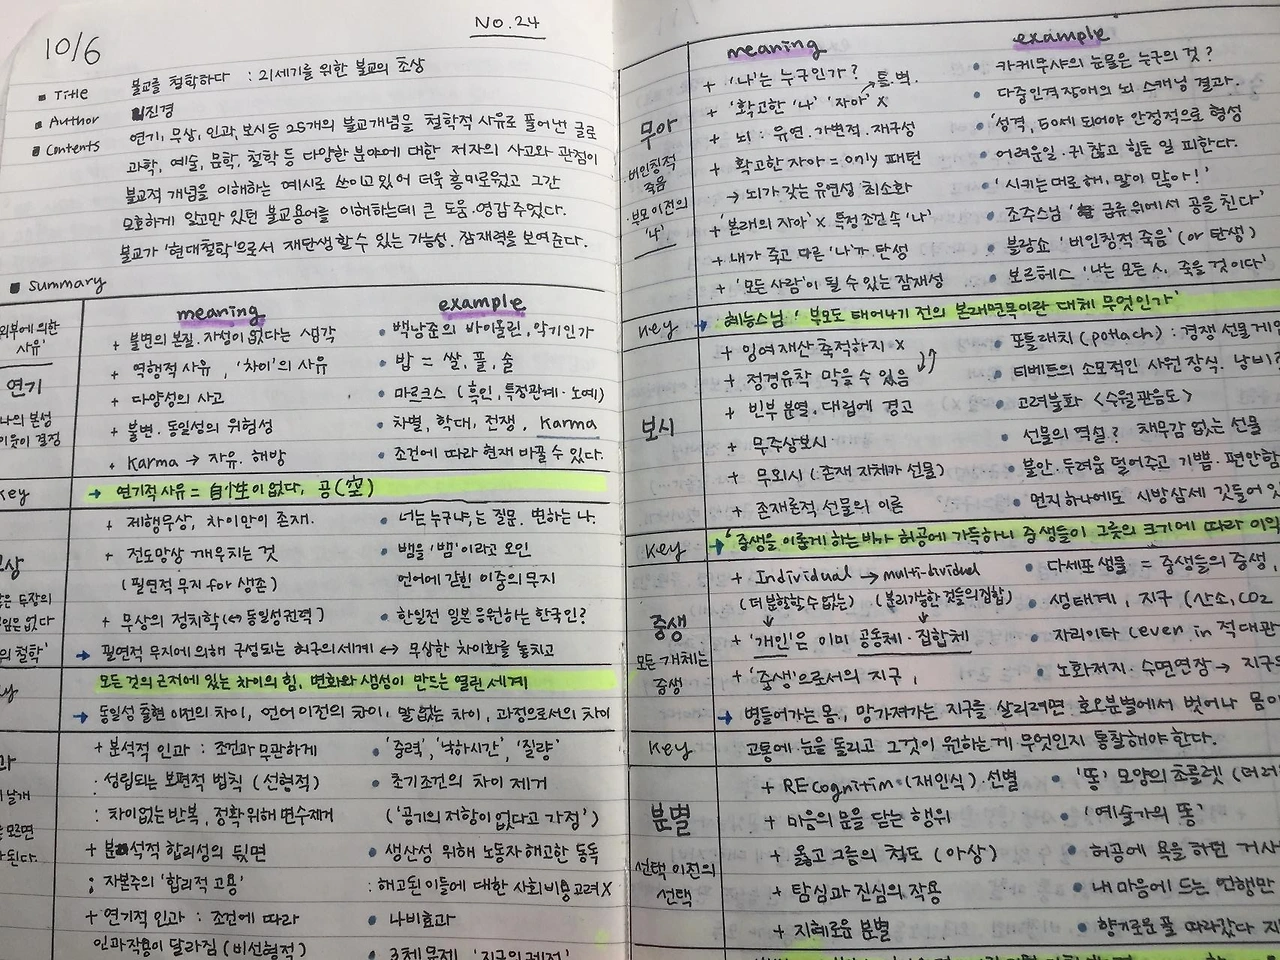 10/6
No.24
▪ Title 불교를 철학하다 : 21세기를 위한 불교의 초상
▪ Author 이진경
▪ Contents 연기, 무상, 인과, 보시등 25개의 불교개념을 철학적 사유로 풀어낸 글로
과학, 예술, 문학, 철학 등 다양한 분야에 대한 저자의 사고와 관점이
불교적 개념을 이해하는 예시로 쓰이고 있어 더욱 흥미로웠고 그간
모호하게 알고만 있던 불교용어를 이해하는데 큰 도움·영감 주었다.
불교가 '현대철학'으로서 재탄생할 수 있는 가능성·잠재력을 보여준다.
▪ Summary
meaning example
외부에 의한
사유'
연기
나의 본성
이웃이 결정
+ 불변의 본질·자성이 없다는 생각 • 백남준의 바이올린, 악기인가
+ 역행적 사유, '차이'의 사유 • 밥 = 쌀, 풀, 술
+ 다양성의 사고 • 마르크스 (흑인, 특정관계·노예)
+ 불변·동일성의 위험성 • 차별, 학대, 전쟁, Karma
+ Karma → 자유·해방 • 조건에 따라 현재 바꿀 수 있다.
key → 연기적 사유 = 自性이 없다, 공(空)
+ 제행무상, 차이만이 존재. • 너는 누구냐,는 질문. 변하는 나.
+ 전도망상 깨우치는 것 • 뱀을 '뱀'이라고 오인
(필연적 무지 for 생존) 언어에 갇힌 이중의 무지
+ 무상의 정치학 (↔ 동일성권력) • 한일전 일본 응원하는 한국인?
→ 필연적 무지에 의해 구성되는 허구의 세계 ↔ 무상한 차이화를 놓치고
모든 것의 근저에 있는 차이의 힘, 변화와 생성이 만드는 열린 세계
→ 동일성 출현 이전의 차이, 언어 이전의 차이, 말 없는 차이, 과정으로서의 차이
+ 분석적 인과 : 조건과 무관하게 • '중력', '낙하시간', '질량'
: 성립되는 보편적 법칙 (선형적) • 초기조건의 차이 제거
: 차이없는 반복, 정확 위해 변수제거 ('공기의 저항이 없다고 가정')
+ 분석적 합리성의 뒷면 • 생산성 위해 노동자 해고한 동독
; 자본주의 '합리적 고용' : 해고된 이들에 대한 사회비용 고려 X
+ 연기적 인과 : 조건에 따라 • 나비효과
인과작용이 달라짐 (비선형적) • 3체문제, '지구의 궤적'
meaning example
무아
·비인칭적
죽음
·부모 이전의
'나'
+ '나'는 누구인가? • 카케무샤의 눈물은 누구의 것?
+ '확고한 '나' '자아' X 통·벽. • 다중인격장애의 뇌 스캐닝 결과.
+ 뇌 : 유연·가변적·재구성 • '성격, 50세 되어야 안정적으로 형성
+ 확고한 자아 = only 패턴 • 어려운일·귀찮고 힘든 일 피한다.
→ 뇌가 갖는 유연성 최소화 • '시키는대로 해, 말이 많아!'
+ '본래의 자아' X 특정조건 속 '나' • 조주스님 '급류 위에서 공을 친다'
+ 내가 죽고 다른 '나'가 탄성 • 블랑쇼 '비인칭적 죽음' (or 탄생)
+ '모든 사람'이 될 수 있는 잠재성 • 보르헤스 '나는 모든 人, 죽을 것이다'
key → 혜능스님 '부모도 태어나기 전의 본래면목이란 대체 무엇인가'
보시
+ 잉여재산 축적하지 X • 포틀래치 (.potlach) : 경쟁 선물게임
+ 정경유착 막을 수 있음 • 티베트의 소모적인 사원 장식. 낭비?
+ 빈부 분열·대립에 경고 • 고려불화 <수월관음도>
+ 무주상보시 • 선물의 역설? 채무감 없는 선물
+ 무외시 (존재 자체가 선물) • 불안·두려움 덜어주고 기쁨·편안함
+ 존재론적 선물의 이론 • 먼지 하나에도 시방삼세 깃들어 있
key → '중생을 이롭게 하는 비가 허공에 가득하니 중생들이 그릇의 크기에 따라 이익
중생
모든 개체는
중생
+ Individual → multi-dividual • 다세포 생물 = 중생들의 중생,
(더 분할할 수 없는) (분리가능한 것들의 집합) • 생태계, 지구 (산소, CO2
+ '개인'은 이미 공동체·집합체 • 자리이타 (even in 적대관
+ '중생'으로서의 지구, • 노화저지·수명연장 → 지구
→ 병들어가는 몸, 망가져가는 지구를 살리려면 호오분별에서 벗어나 몸이
key 고통에 눈을 돌리고 그것이 원하는 게 무엇인지 통찰해야 한다.
분별
선택 이전의
선택
+ REcognition·(재인식)·선별 • '똥' 모양의 초콜렛 (더러
+ 마음의 문을 닫는 행위 • '예술가의 똥'
+ 옳고 그름의 척도 (아상) • 허공에 욕을 하던 거사
+ 탐심과 진심의 작용 • 내 마음에 드는 언행만
+ 지혜로운 분별 • 향기로운 풀 따라갔다 지